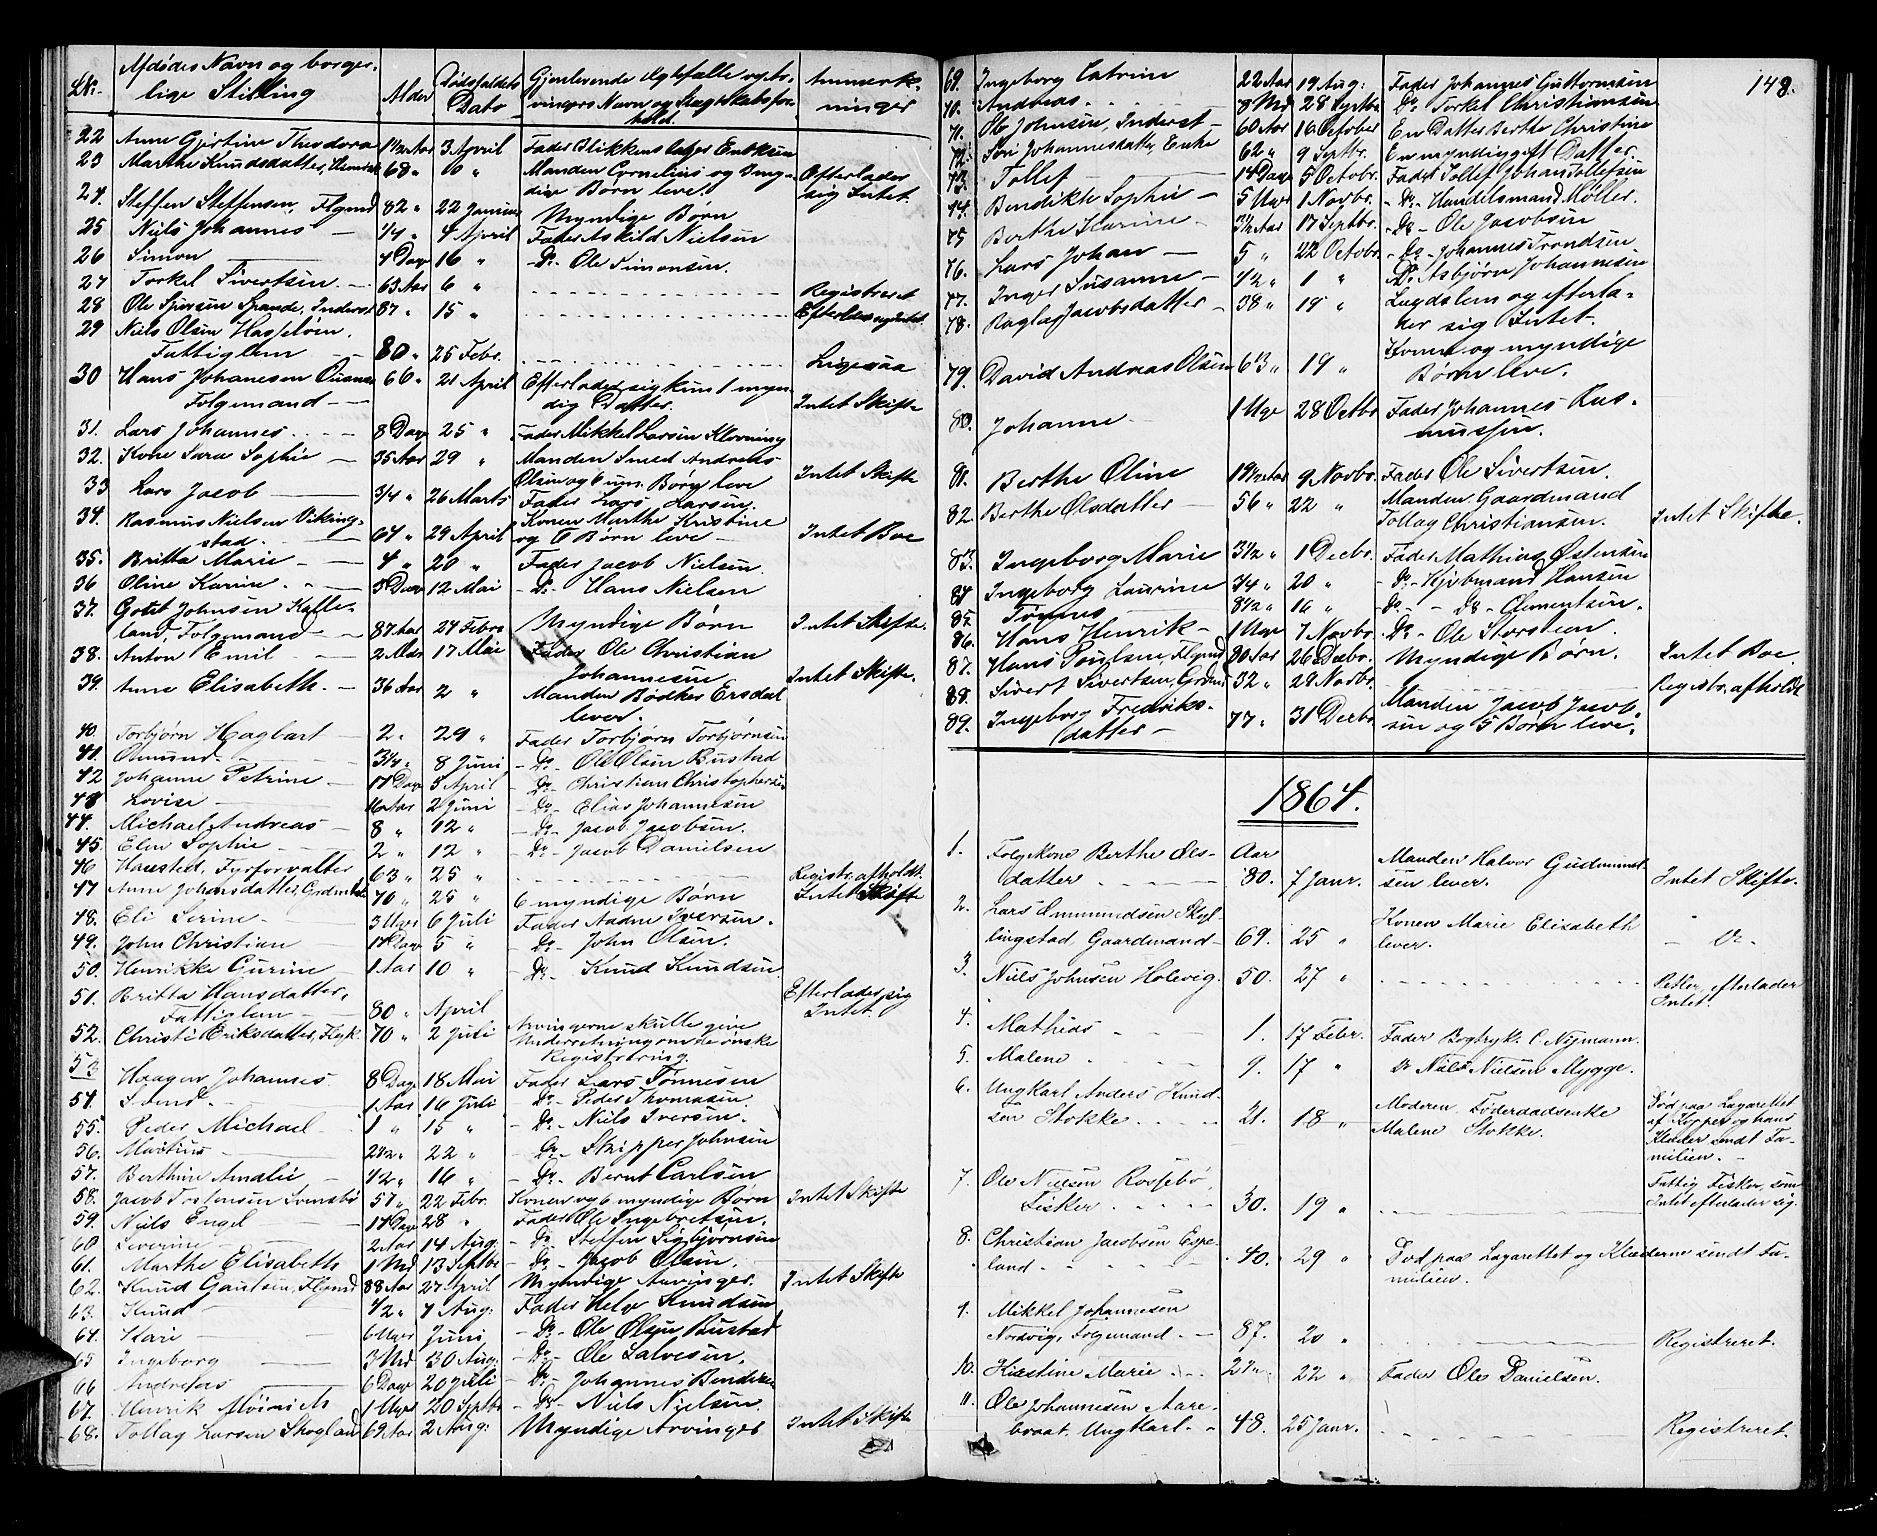 No. Afdødes Navn og borger- Alder Dødsfaldets Gjenlevende Ægtefælle og Ar- Anmærk-
lige Stilling Dato vingers Navn og Slægtskabsfor- ninger
hold.
22 Anne Gjertine Theodora Aar 3 April Fader Blikkenslager
23 Marthe Knudsdatter, 68 " 6 " Manden Cornelius og Efterlader
dige Børn lever sig Intet.
24. Steffen Steffensen, Flgmd 82 " 22 Januar Myndige Børn
25 Niels Johannes — 1/4 " 4 April Fader Askild Nielsen
26 Simon 4 Dage 16 " Do. Ole Simonsen.
27 Torkel Sivertsen — 63 Aar 6 " Registreret
28 Ole Sjursen Spande, Inderst 87 " 15 " Efterlader sig Intet
29 Niels Olsen Hasseløen,
Fattiglem — 80 " 25 Febr. Ligesaa
30 Hans Johanesen 60 " 21 April Efterlader sig kun 1 myn-
Folgemand — dig Datter. Intet Skifte
31. Lars Johannes 8 Dage 25 " Fader Mikkel Larsen Klovning
32. Kone Sara Sophie — 35 Aar 29 " Manden Smed Andreas
Olsen og 6 um. Børn leve Intet Skifte
33 Lars Jacob — 3/4 " 26 Marts Fader Lars Larsen.
34. Rasmus Nielsen Viking- Konen Marthe Kristine
stad. — 64 " 29 April og 6 Børn leve — Intet Boe
35. Britta Marie — 4 " 20 " Fader Jacob Nielsen.
36 Oline Karine 3 Dage 12 Mai Do. Hans Nielsen
37. Gotst Johnsen Kalle-
land, Folgemand — 87 Aar 27 Febr Myndige Børn Intet Skifte.
38. Anton Emil — 2 Mdr 17 Mai Fader Ole Christian
Johannesen
39. Anne Elisabeth. — 36 Aar 2 " Manden Bødker Ersdal Intet Skifte.
lever.
40. Torbjørn Hagbart — 2 " 29 " Fader Torbjørn Torbjørnsen
41. Omund — 3/4 " 8 Juni Do. Ole Olsen Bustad
42 Johanne Petrine — 17 Dage 5 April Do. Christian Christophersen
43 Lovise — Aar 2 Juni Do. Elias Johannesen
44. Michael Andreas — 8 " 12 " Do. Jacob Jacobsen.
45. Elen Sophie — 2 " 12 " Do. Jacob Danielsen
46 Hansted, Fyrforvalter 63 " 25 " Registr. afholdt.
47 Anne Johansdatter, 70 " 25 " 6 myndige Børn Intet Skifte
48. Eli Serine — 3 Uger 6 Juli Fader Aadne Iversen.
49. John Christian — 17 Dage 5 " Do. John Olsen.
50. Henrikke Gurine — 1 Aar 10 " Do. Knud Knudsen
51. Britta Hansdatter, Efterlader sig
Fattiglem — 80 " April Intet.
52. Christi Eriksdatter, 70 " 2 Juli Arvingerne skulle give
Underretning om de ønske
Registrering.
53 Haagen Johannes 8 Dage 18 Mai Fader Lars Tønnesen
54. Svend. — 1 Aar 16 Juli Do. Peder Thomasen.
55. Peder Michael 1 " 15 " Do. Niels Iversen.
56. Martine " 22 " Do. Skipper Johnsen
57. Berthine Amalie — 1/2 " 16 " Do. Bernt Carlsen
58. Jacob Torstensen Svensbø 57 " 22 Febr. Konen og 6 myndige Børn Intet Skifte
59. Niels Engel 17 Dage 28 " Fader Ole Ingebretsen.
60 Severine — 2 Aar 14 Aug. Do. Steffen Sigbjørnsen
61. Marthe Elisabeth 1 Md 13 Septbr Do. Jacob Olsen.
62. Knud Gautsen, Flgmd 88 Aar 27 April Myndige Arvinger. Intet Skifte
63. Knud 1/2 " 7 Aug. Fader Helge Knudsen
64. Kari — 6 Uger Juni Do. Ole Olsen Bustad
65 Ingeborg — 3 Md 30 Aug. Do. Ole Salvesen.
66 Andreas 6 Dage 20 Juli Do. Johannes
67. Henrik 1 Uger 20 Septbr Do. Niels Nielsen.
68. Tollag Larsen Skogland 69 Aar 2 Aug. Myndige Arvinger Intet Skifte
148.
69. Ingeborg Catrine 22 Aar 19 Aug: Fader Johannes Guttormsen
70. Andreas 8 Md 28 Septbr Do. Torkel Christiansen
71. Ole Johnsen, Inderst — 60 Aar 16 October En Datter Berthe Christine
72. Siri Johannesdatter, Enke 62 " 9 Septbr. En myndig gift Datter.
73. Tollef — 14 Dage 5 Octobr. Fader Tollef Johan Tollefsen
74. Bendikte Sophie — 5 Uger 1 Novbr. Do. Handelsmand Møller.
75 Berthe Karine — 3 1/2 Aar 17 Septbr. Do. Ole Jacobsen
76. Lars Johan — 5 " 22 Octobr. Do. Johannes Trondsen
77. Inger Susanne — 1/2 " 1 " Do. Asbjørn Johannesen
78. Ragla Jacobsdatter — 38 " 19 " Lægdslem og efterla-
der sig Intet.
79. David Andreas Olsen 63 " 19 " Kone og myndige
Børn leve.
80. Johanne 1 Uge 28 Octbr Fader Johannes Ras-
mussen.
81. Berthe Oline Aar 9 Novbr. Fader Ole Sivertsen.
82. Berthe Olsdatter — 56 " 22 " Manden, Gaardmand
Tollag Christiansen. Intet Skifte.
83. Ingeborg Marie 3 1/2 " 1 Decbr. Fader Mathias Østensen
84 Ingeborg Laurine 3/4 " 20 " Do. Kjøbmand Hansen
85. Tønnes — 8 1/2 " 16 " Do. — Do. Clementsen.
86. Hans Henrik — 1 Uge 7 Novbr. Do. Ole Storsteen
87. Hans Poulsen, Flgmd 80 Aar 26 Decbr. Myndige Børn. Intet Boe.
88. Sivert Sivertsen, 32 " 29 Novbr. Registr. afholdt
89. Ingeborg Fredriks- Manden Jacob Jacob-
datter — 77 " 31 Decbr. sen og 5 Børn leve.
1864.
1. Folgekone Berthe Ols- Aar Manden Halvor Gudmund-
datter 80. 7 Janr. sen lever. Intet Skifte.
2. Lars Ommundsen Skyl- Konen Marie Elisabeth
lingstad, Gaardmand — 69. 25 " lever. — Do. —
3. Niels Johnsen Holevig. 50. 27 " Betler, efterlader
Intet.
4. Mathias 1. 17 Febr. Fader Bogtryk. C. Nymann.
5. Malene 9. 17 " Do Niels Nielsen Mygge.
6. Ungkarl Anders Knud- Moderen Føderaadsenke Død paa Lazarettet
sen Stokke 21. 18 " Malene Stokke. af Kopper og hans
Klæder sendt Fa-
milien.
7. Ole Nielsen Rossebø Fattig Fisker, som
Fisker. 30. 19 " Intet efterlader sig.
8. Christian Jacobsen Espe-
land 40. 29 " Død paa Lazarettet og Klæderne sendt Fa-
milien.
9. Mikkel Johannesen
Nordvig, Folgemand. 87. 20 " Registreret.
10. Kirstine Marie 22 " Fader Ole Danielsen.
11. Ole Johannesen Aare-
braat. Ungkarl. 48. 25 Janr. Registreret.